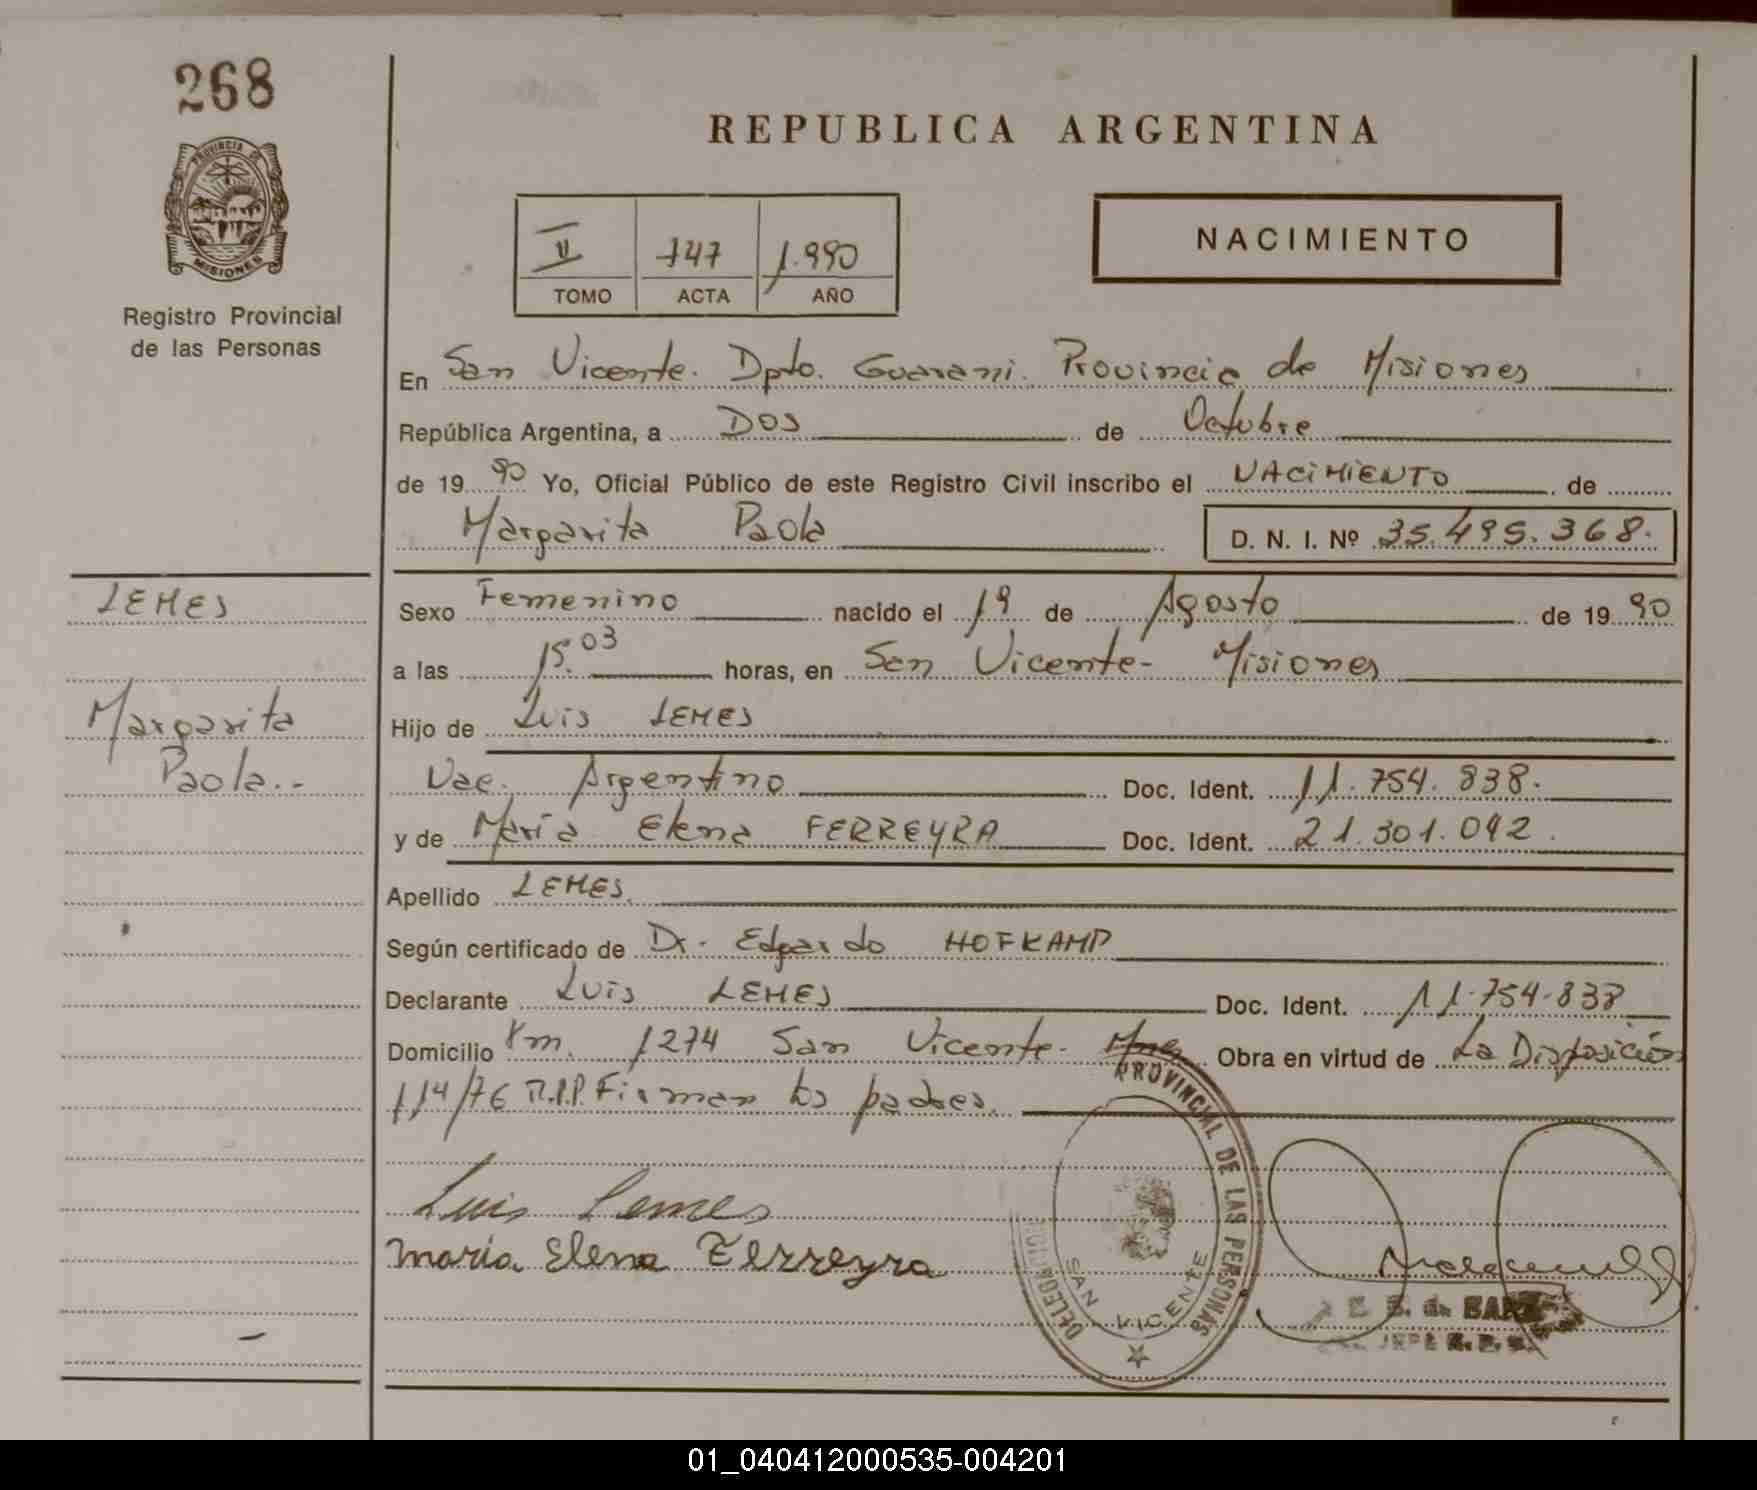 268
PROVINCIA DE
MISIONES
Registro Provincial
de las Personas
REPUBLICA ARGENTINA
II 747 1.990
TOMO ACTA AÑO
NACIMIENTO
En San Vicente. Dpto. Guarani. Provincia de Misiones
República Argentina, a Dos de Octubre
de 19 90 Yo, Oficial Público de este Registro Civil inscribo el NACIMIENTO de
Margarita Paola D. N. I. Nº 35.495.368.
LEMES
Margarita
Paola..-
Sexo Femenino nacido el 19 de Agosto de 19 90
a las 15.03 horas, en San Vicente- Misiones
Hijo de Luis LEMES
Nac. Argentino Doc. Ident. 11.754.838.
y de María Elena FERREYRA Doc. Ident. 21.301.042.
Apellido LEMES.
Según certificado de Dr. Edgardo HOFKAMP
Declarante Luis LEMES Doc. Ident. 11.754.838
Domicilio Km. 1274 San Vicente- Mnes Obra en virtud de La Disposición
114/76 R.P.P. Firman los padres.
Luis Lemes
maria Elena Ferreyra
PROVINCIAL DE LAS PERSONAS
DELEGACION
SAN VICENTE
01_040412000535-004201